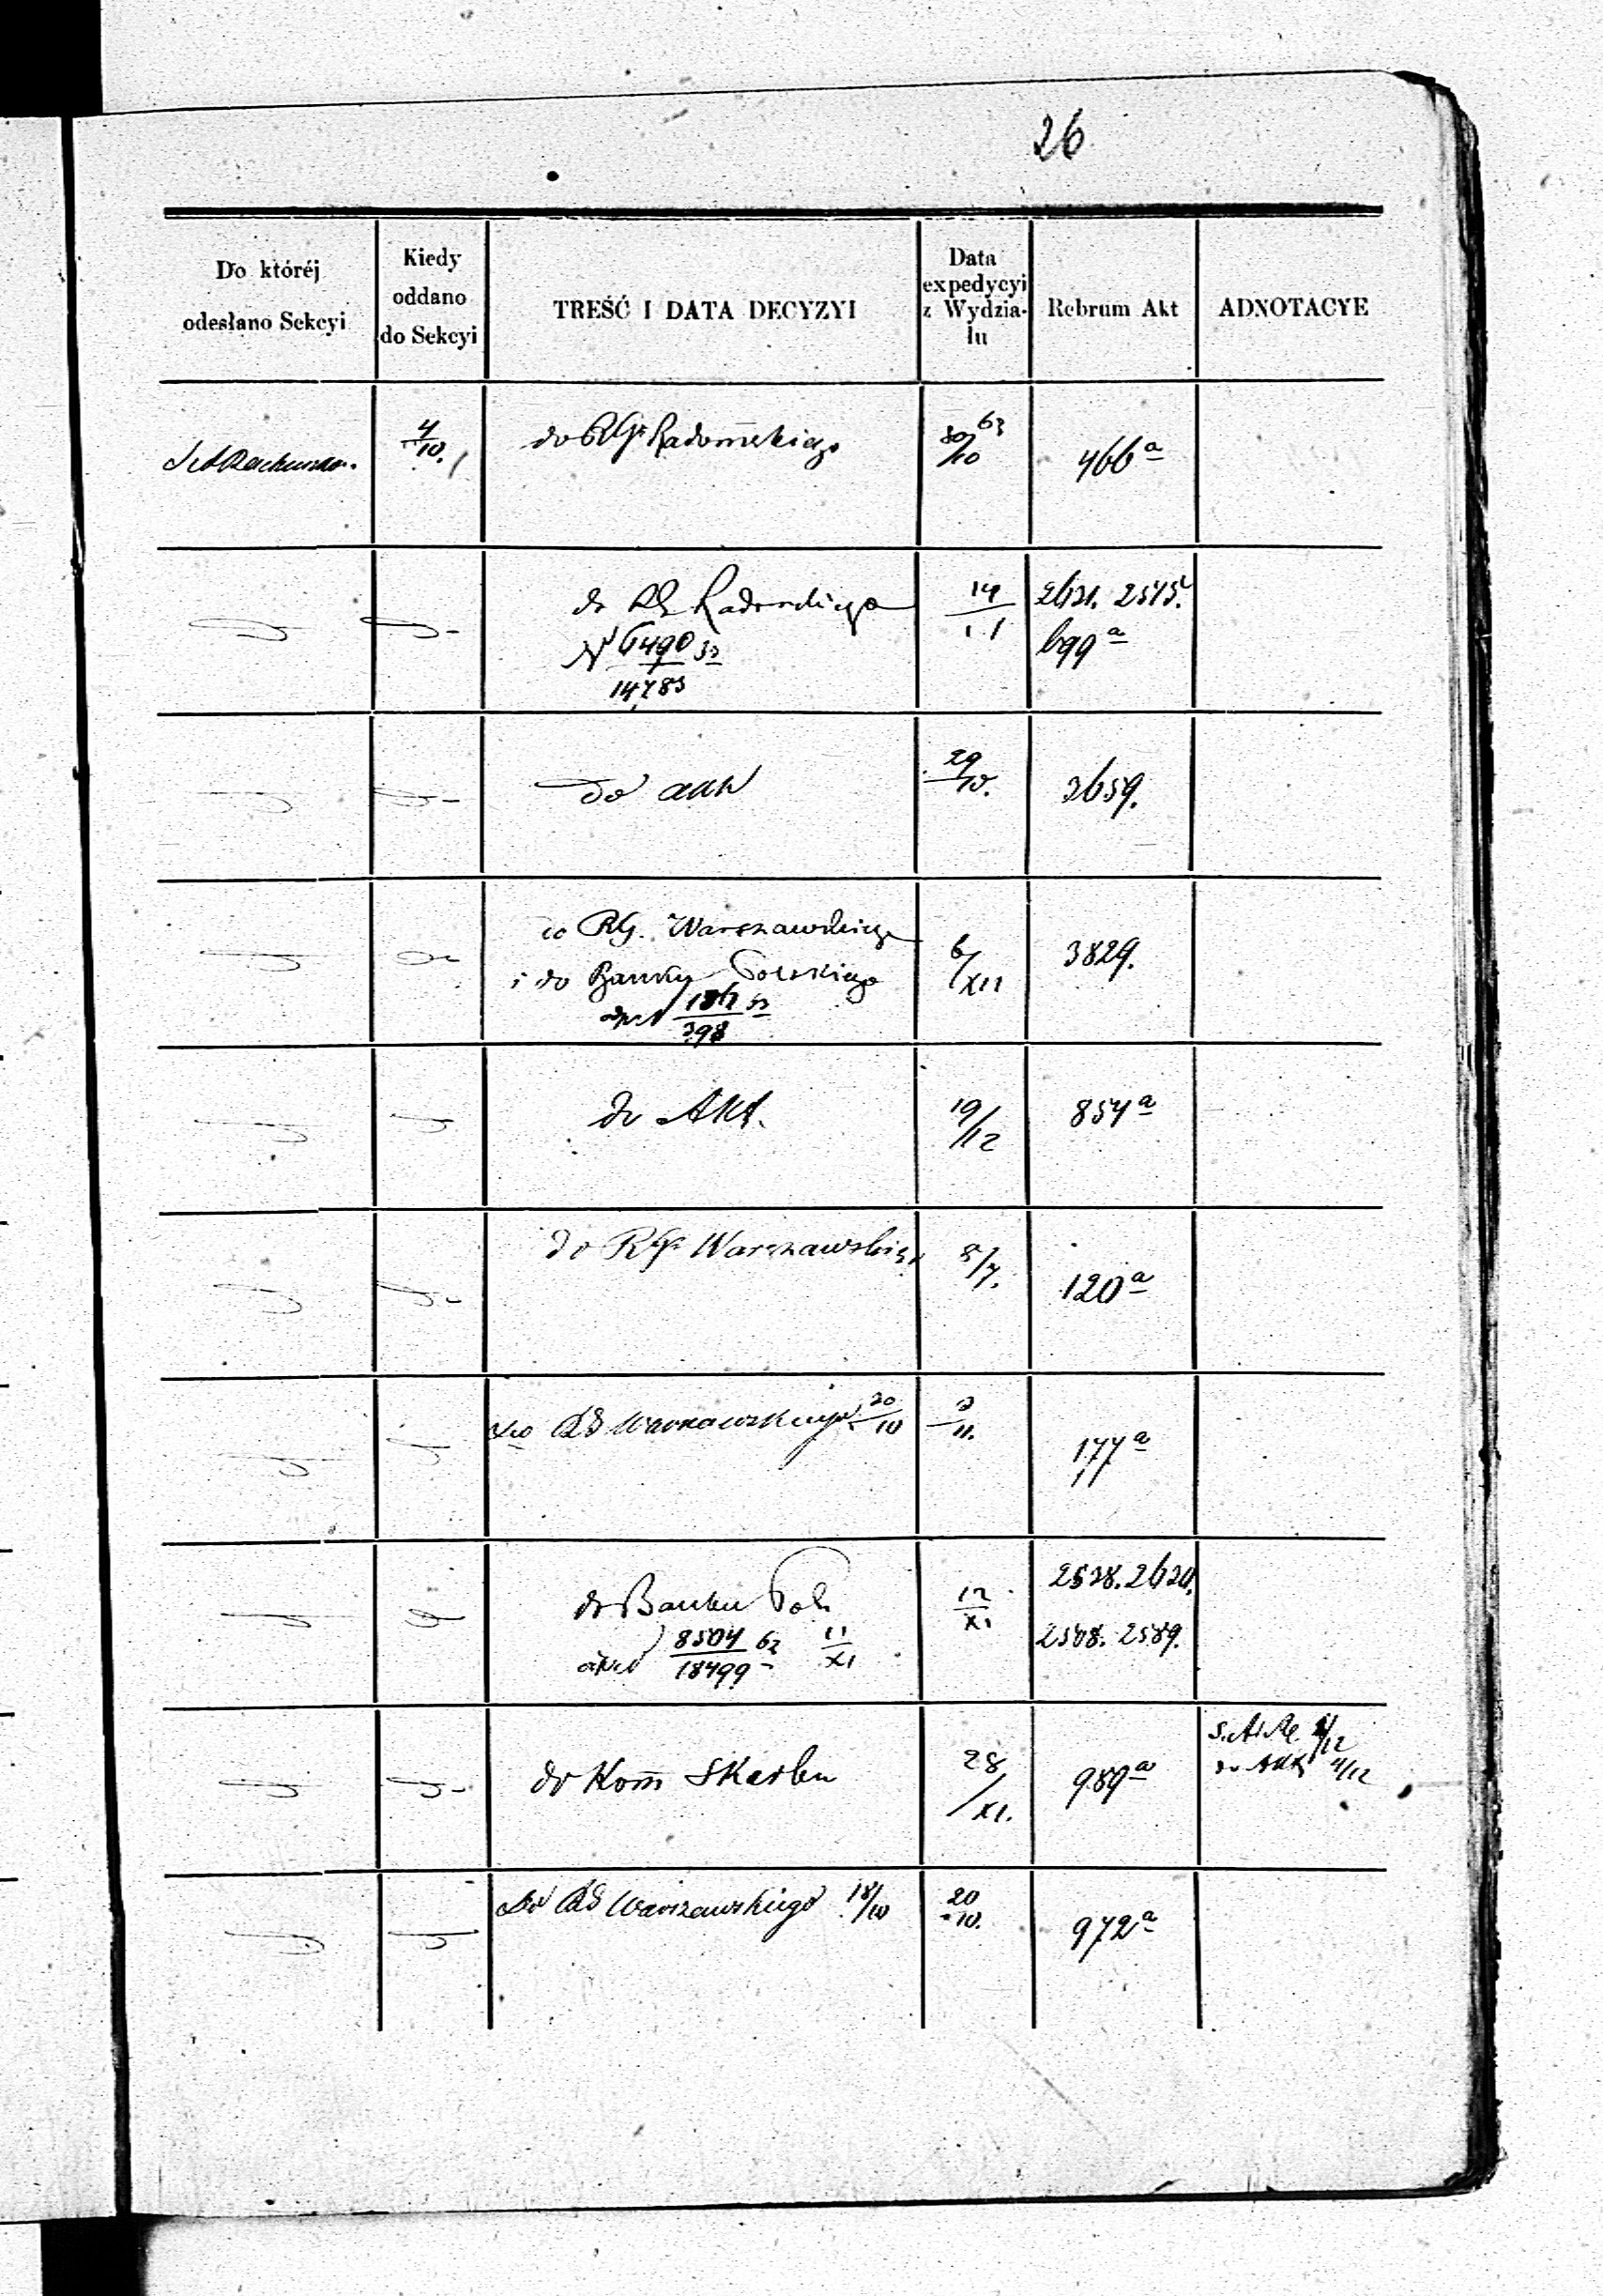 26
Do któréj
odesłano Sekcyi
Kiedy
oddano
do Sekcyi
TREŚĆ I DATA DECYZYI
Data
expedycyi
z Wydzia-
łu
Rebrum Akt
ADNOTACYE
4/10.
do RGo Radomskiego
30/10 63
466 a
do RG Radomskiego
No 6490
14783
14/11
2621. 2575.
699 a
do akt
29/10.
3659.
do RG. Warszawskiego
i do Banku Polskiego
398
6/XII
3829.
do Akt.
19/12
854 a
do RGo Warszawskieg
8/7.
120 a
do RG Warszawskiego 30/10
3/11.
177 a
do Banku Pol.
8504
18499
63
11/XI
12/XI
2528. 2620.
2508. 2589.
do Kom Skarbu
28/XI.
989 a
do Akt 4/12
do RG Warszawskiego 18/10
20/10.
972 a